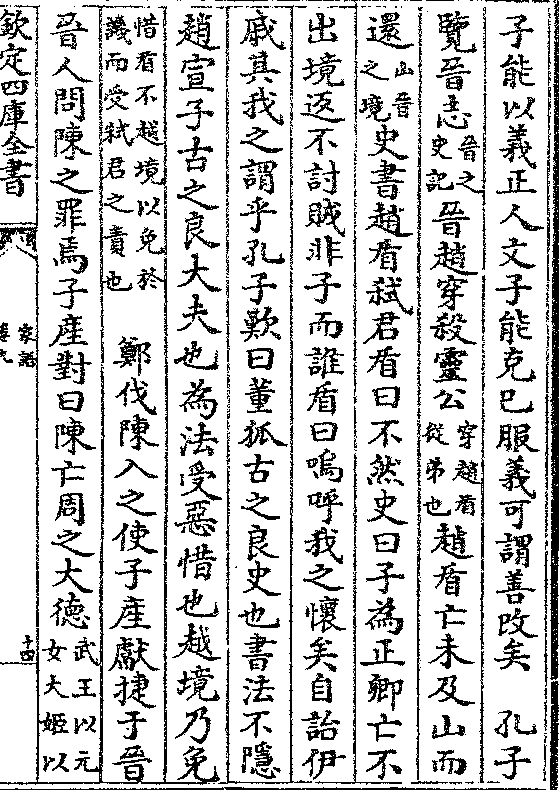 子能以義正人文子能克已服義可謂善改矣　孔子
覽晉志晉之史記晉趙穿殺靈公穿趙盾從弟也趙盾亡未及山而
還山晉之境史書趙盾弑君盾曰不然史曰子為正卿亡不
出境返不討賊非子而誰盾曰嗚呼我之懷矣自詒伊
戚其我之謂乎孔子歎曰董狐古之良史也書法不隱
趙宣子古之良大夫也為法受惡惜也越境乃免
惜盾不越境以免於譏而受弑君之責也　鄭伐陳入之使子産獻捷于晉
晉人問陳之罪焉子産對曰陳亡周之大徳武王以元女大姬以
欽定四庫全書　家語　卷九　十四